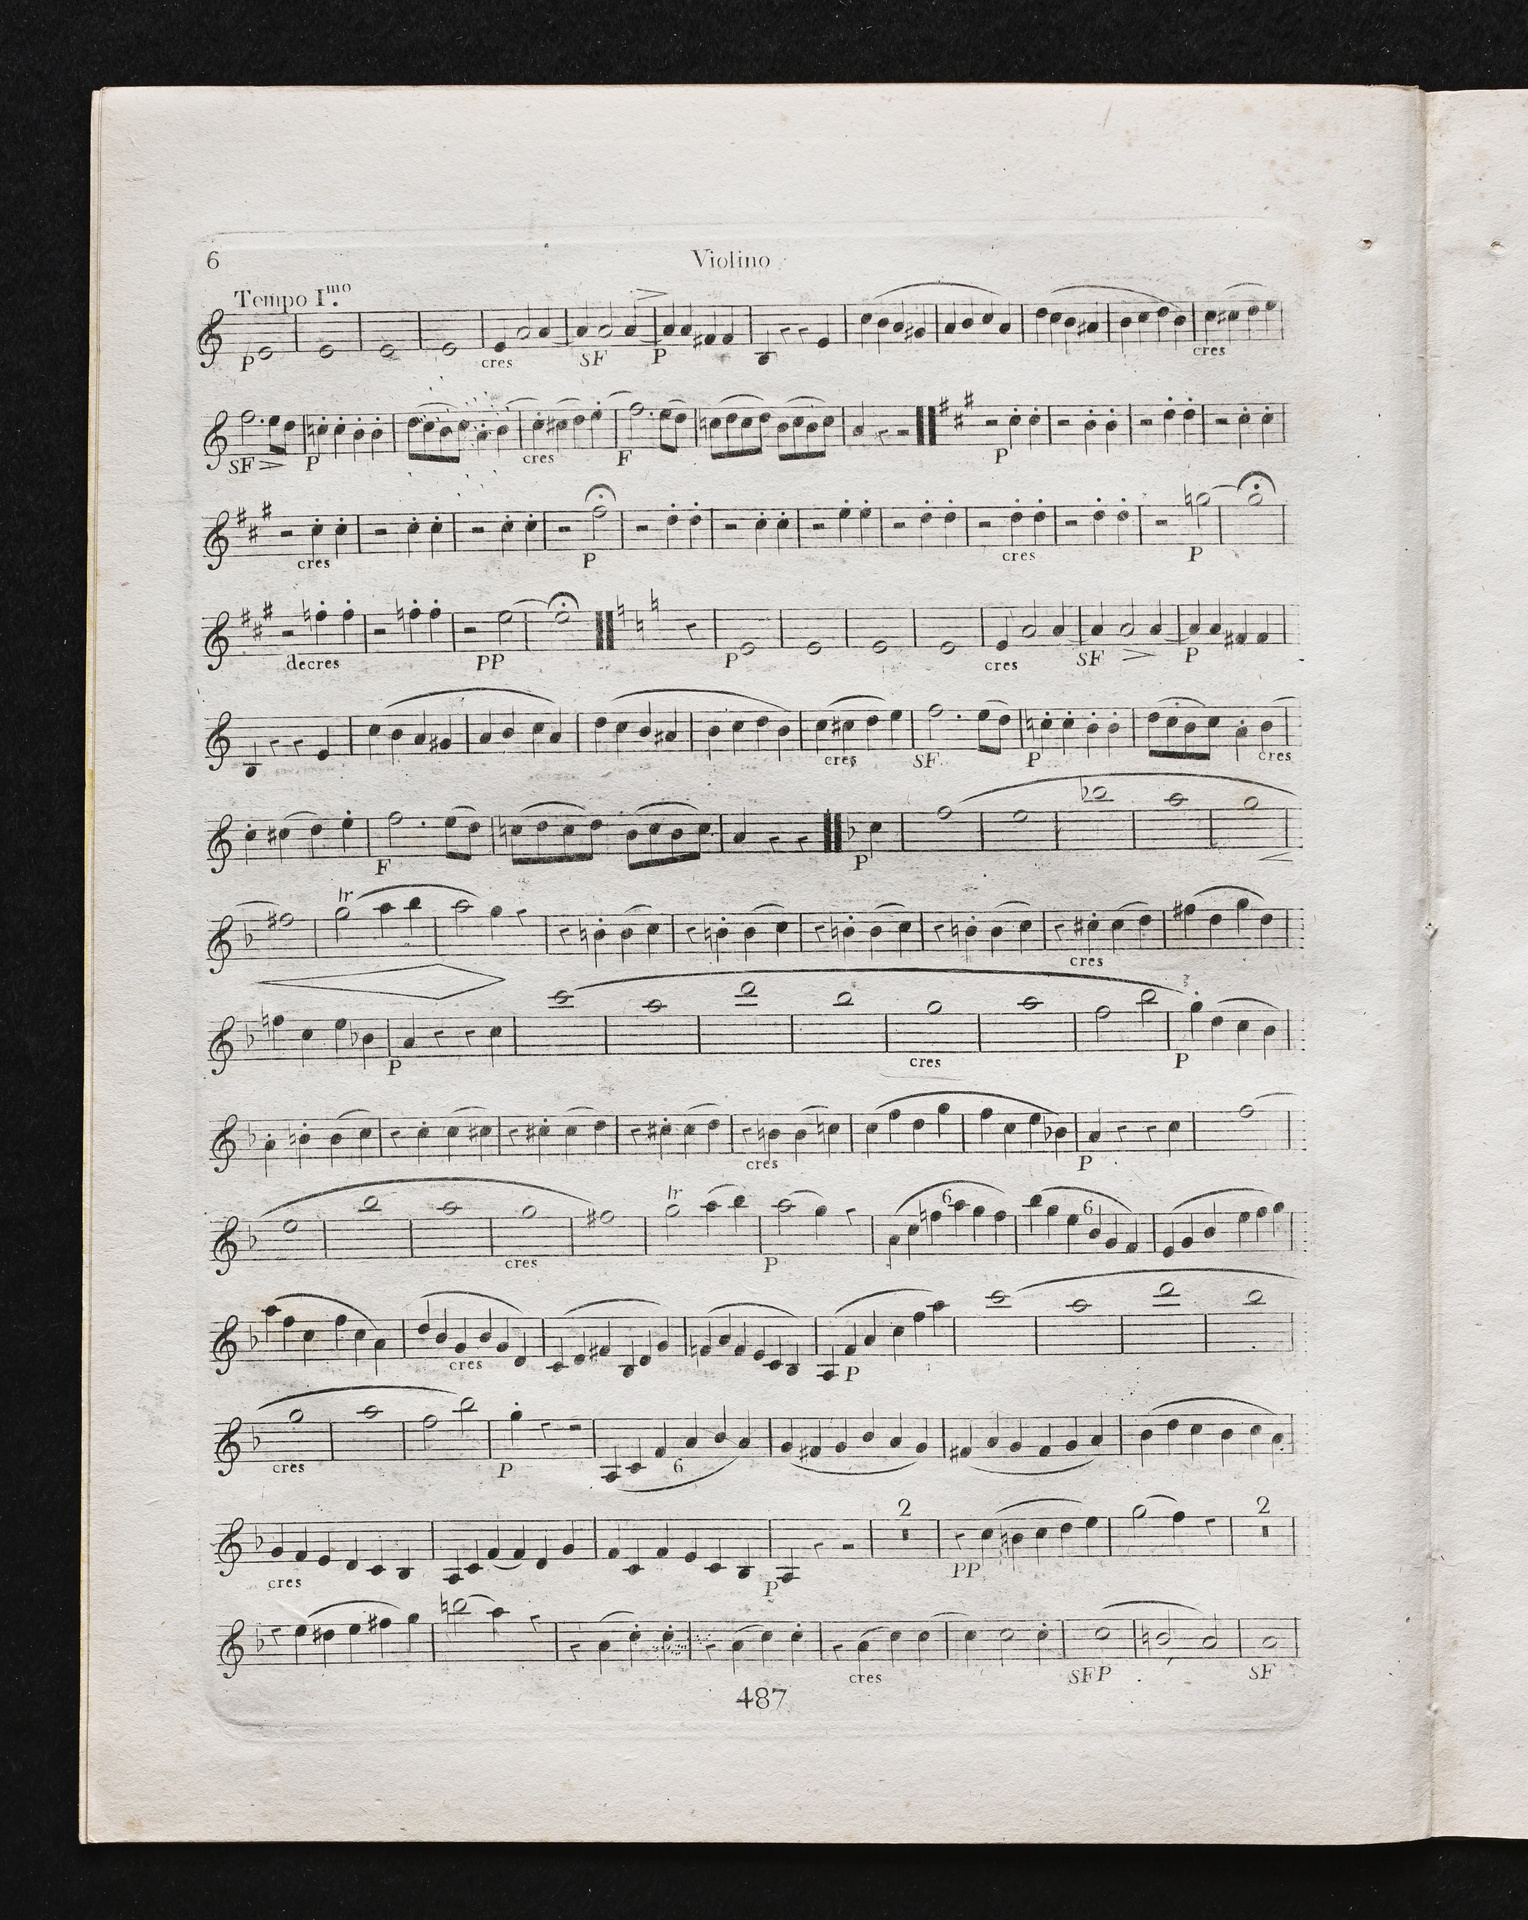 6 Violino
Tempo I.mo
P cres SF P cres
SF P cres F P
cres P cres P
decres PP P cres SF P
cres SF P cres
F P
tr cres
P cres P
cres P
tr 6 6
cres P
cres P
cres P 6
2 2
cres P PP
cres SFP SF
487